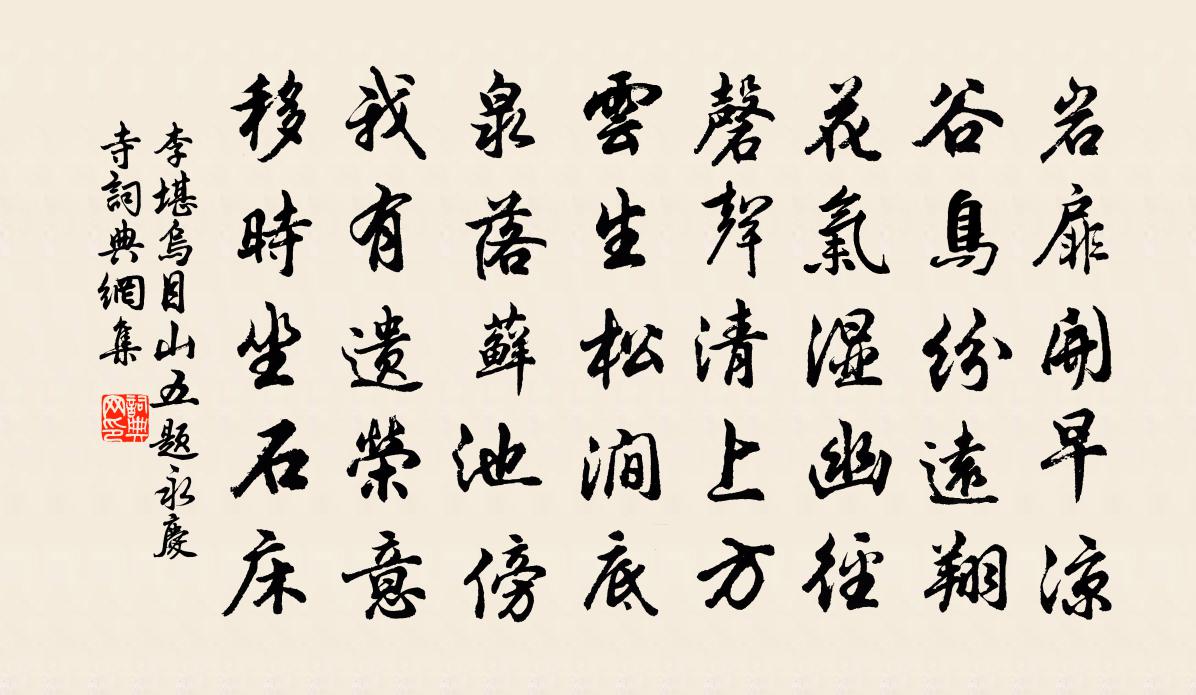 岩扉開早涼
谷鳥紛遠翔
花氣濕幽徑
磬聲清上方
雲生松澗底
泉落蘚池傍
我有遺榮意
移時坐石床
李堪烏目山五題永慶
寺詞典網集
詞典
网印